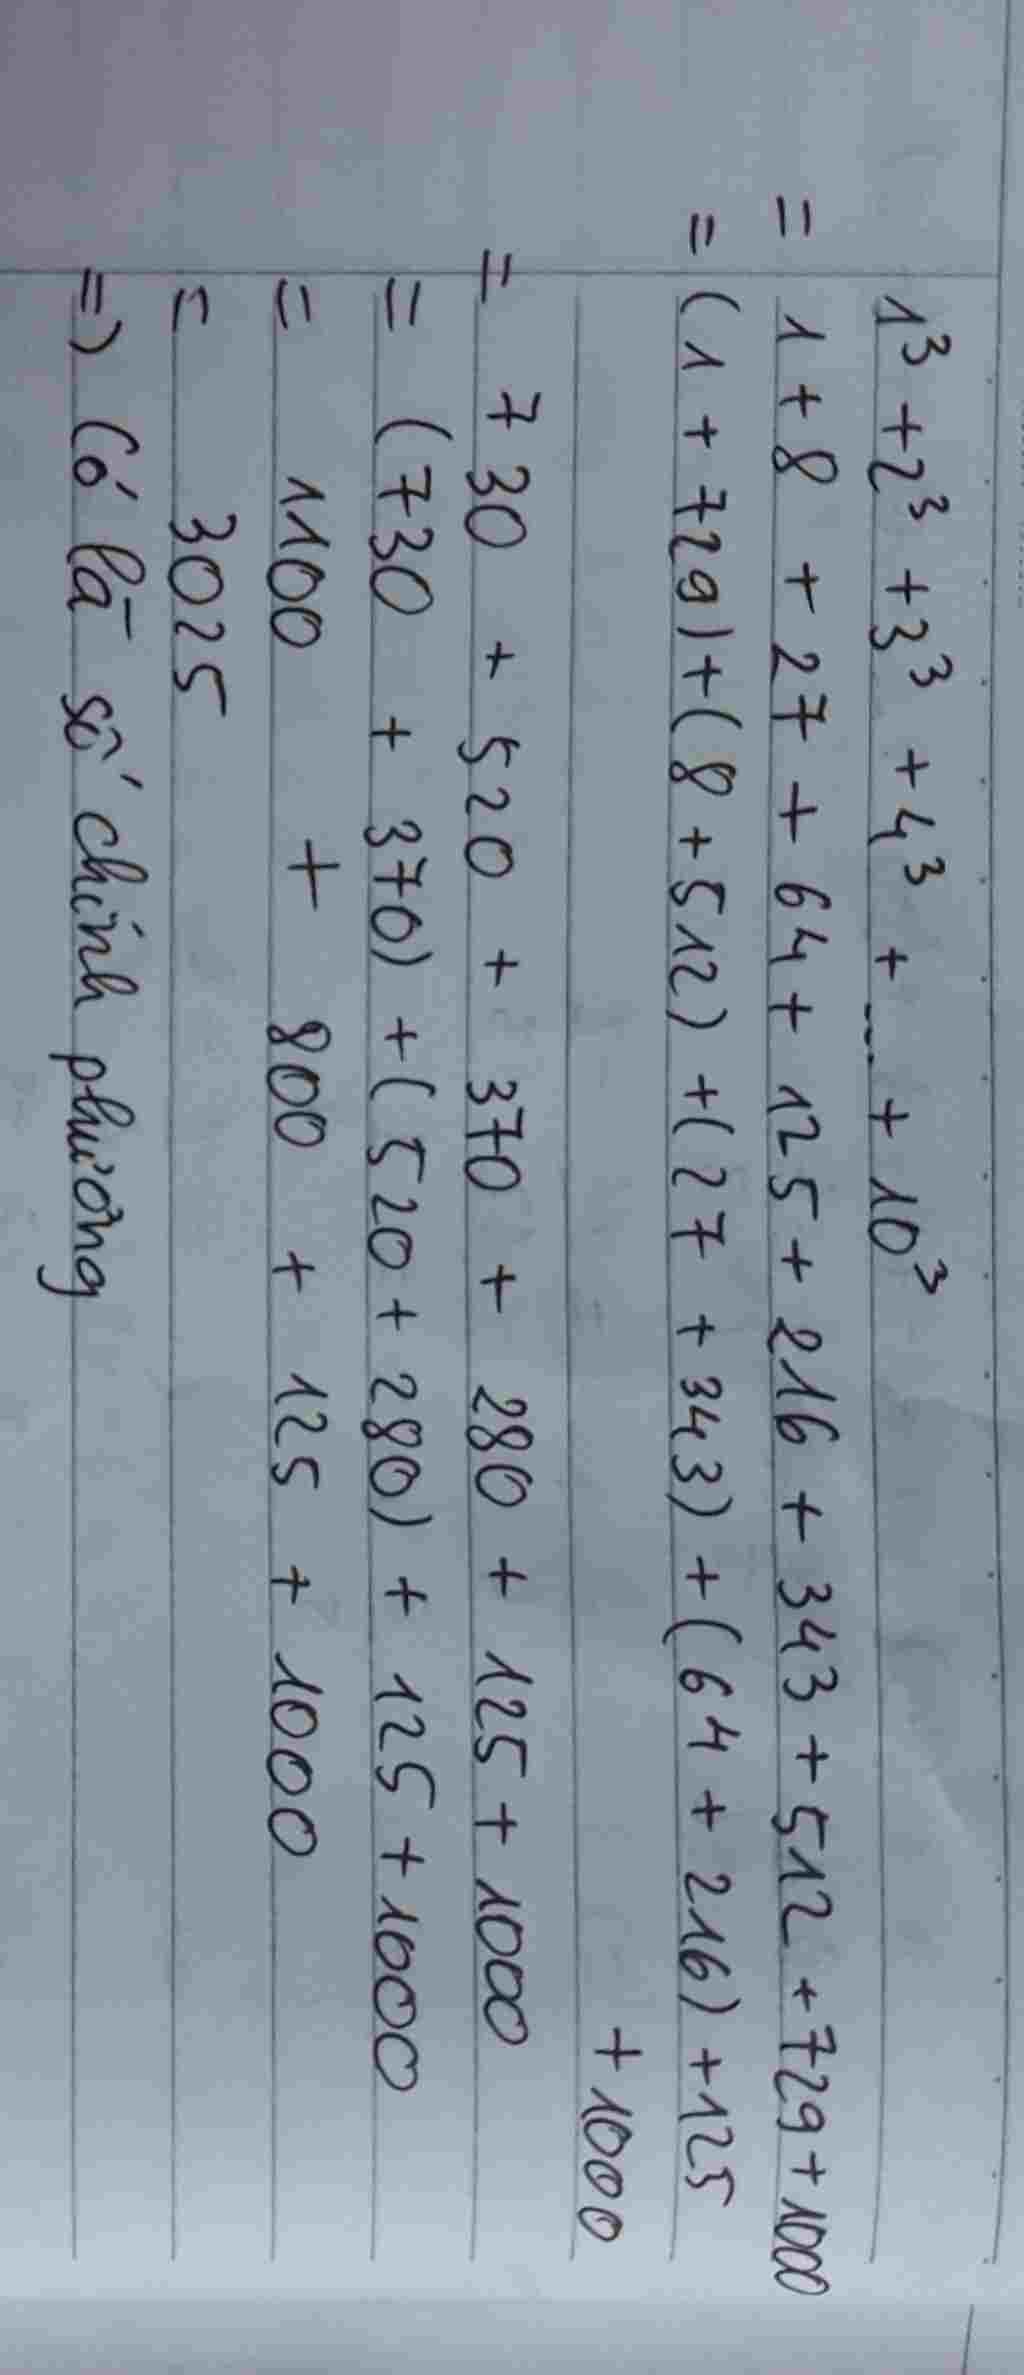 1³ + 2³ + 3³ + 4³ + ... + 10³
= 1 + 8 + 27 + 64 + 125 + 216 + 343 + 512 + 729 + 1000
= (1 + 729) + (8 + 512) + (27 + 343) + (64 + 216) + 125
+ 1000
= 730 + 520 + 370 + 280 + 125 + 1000
= (730 + 370) + (520 + 280) + 125 + 1000
= 1100 + 800 + 125 + 1000
= 3025
=) Có là số chính phương